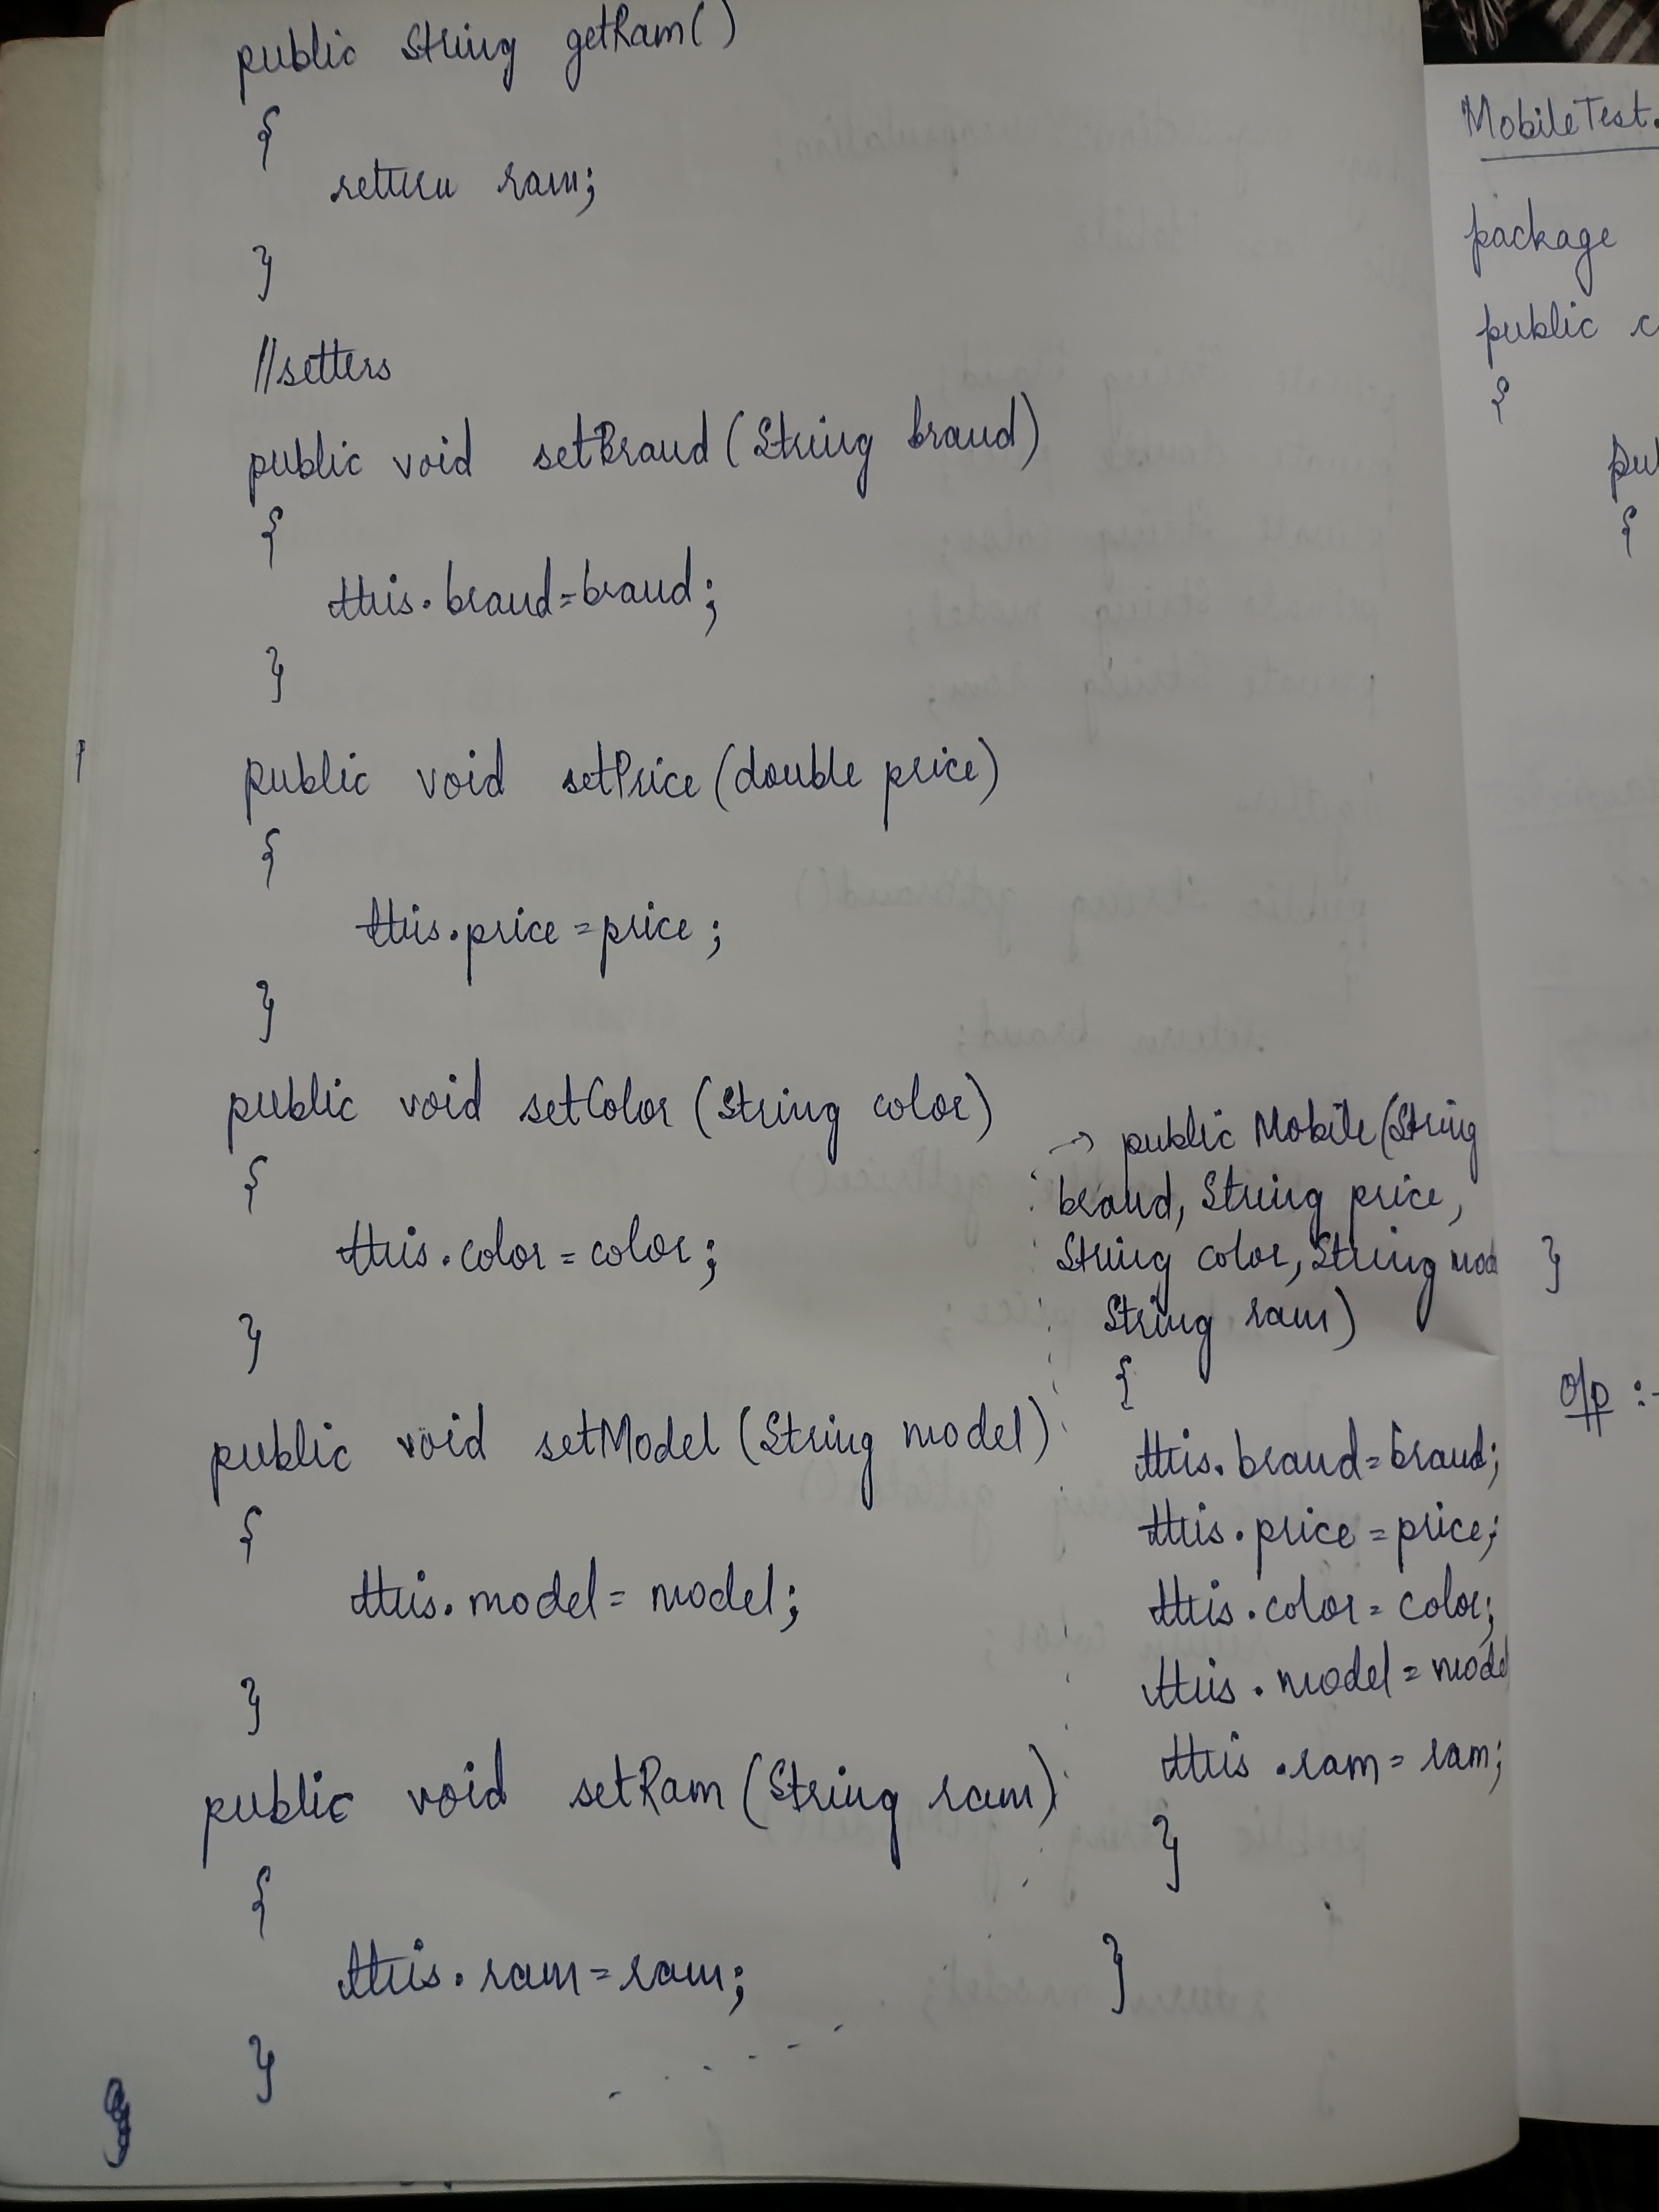 public String getRam()
{
return ram;
}
//setters
public void setBrand(String brand)
{
this.brand=brand;
}
public void setPrice(double price)
{
this.price=price;
}
public void setColor(String color)
{
this.color=color;
}
public void setModel(String model)
{
this.model=model;
}
public void setRam(String ram)
{
this.ram=ram;
}
→ public Mobile(String
brand, String price,
String color, String mod
String ram)
{
this.brand=brand;
this.price=price;
this.color=color;
this.model=model
this.ram=ram;
}
}
MobileTest.
package
public c
{
pu
{
}
o/p :-